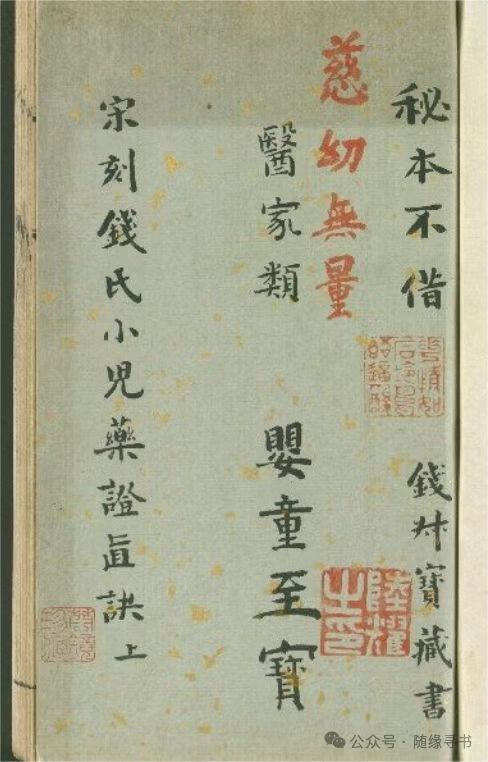 秘本不借
錢叔寶藏書
慈幼無量
醫家類
嬰童至寶
陸燿之印
宋刻錢氏小兒藥證直訣上
公众号·随缘寻书